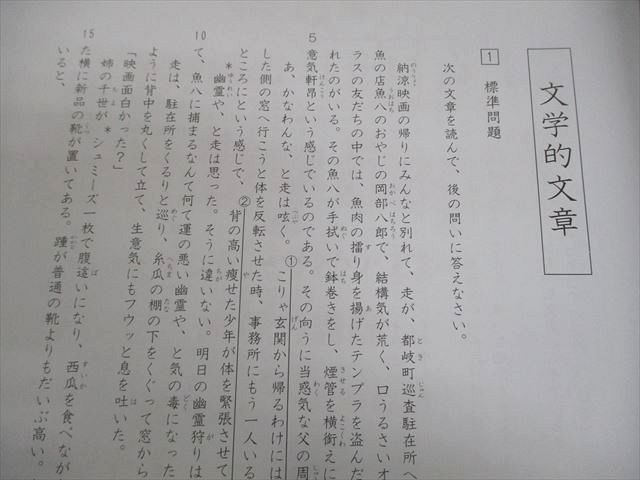 文学的文章
1 標準問題
次の文章を読んで、後の問いに答えなさい。
納涼映画の帰りにみんなと別れて、走が、都岐町巡査駐在所へ
魚の店魚八のおやじの岡部八郎で、結構気が荒く、口うるさいオ
ラスの友だちの中では、魚肉の擂り身を揚げたテンプラを盗んだ
れたのがいる。その魚八が手拭いで鉢巻きをし、煙管を横銜えに
5 意気軒昂という感じでいるのである。その向うに当惑気な父の周
あ、かなわんな、と走は呟く。①こりゃ玄関から帰るわけには
した側の窓へ行こうと体を反転させた時、事務所にもう一人いる
ところにという感じで、②背の高い痩せた少年が体を緊張させて
＊幽霊や、と走は思った。そうに違いない。明日の幽霊狩りは
10 て、魚八に捕まるなんて何て運の悪い幽霊や、と気の毒になった
走は、駐在所をくるりと巡り、糸瓜の棚の下をくぐって窓から
ように背中を丸くして立て、生意気にもフウッと息を吐いた。
「映画面白かった？」
姉の千世が＊シュミーズ一枚で腹這いになり、西瓜を食べなが
15 た横に新品の靴が置いてある。踵が普通の靴よりもだいぶ高い。
いると、